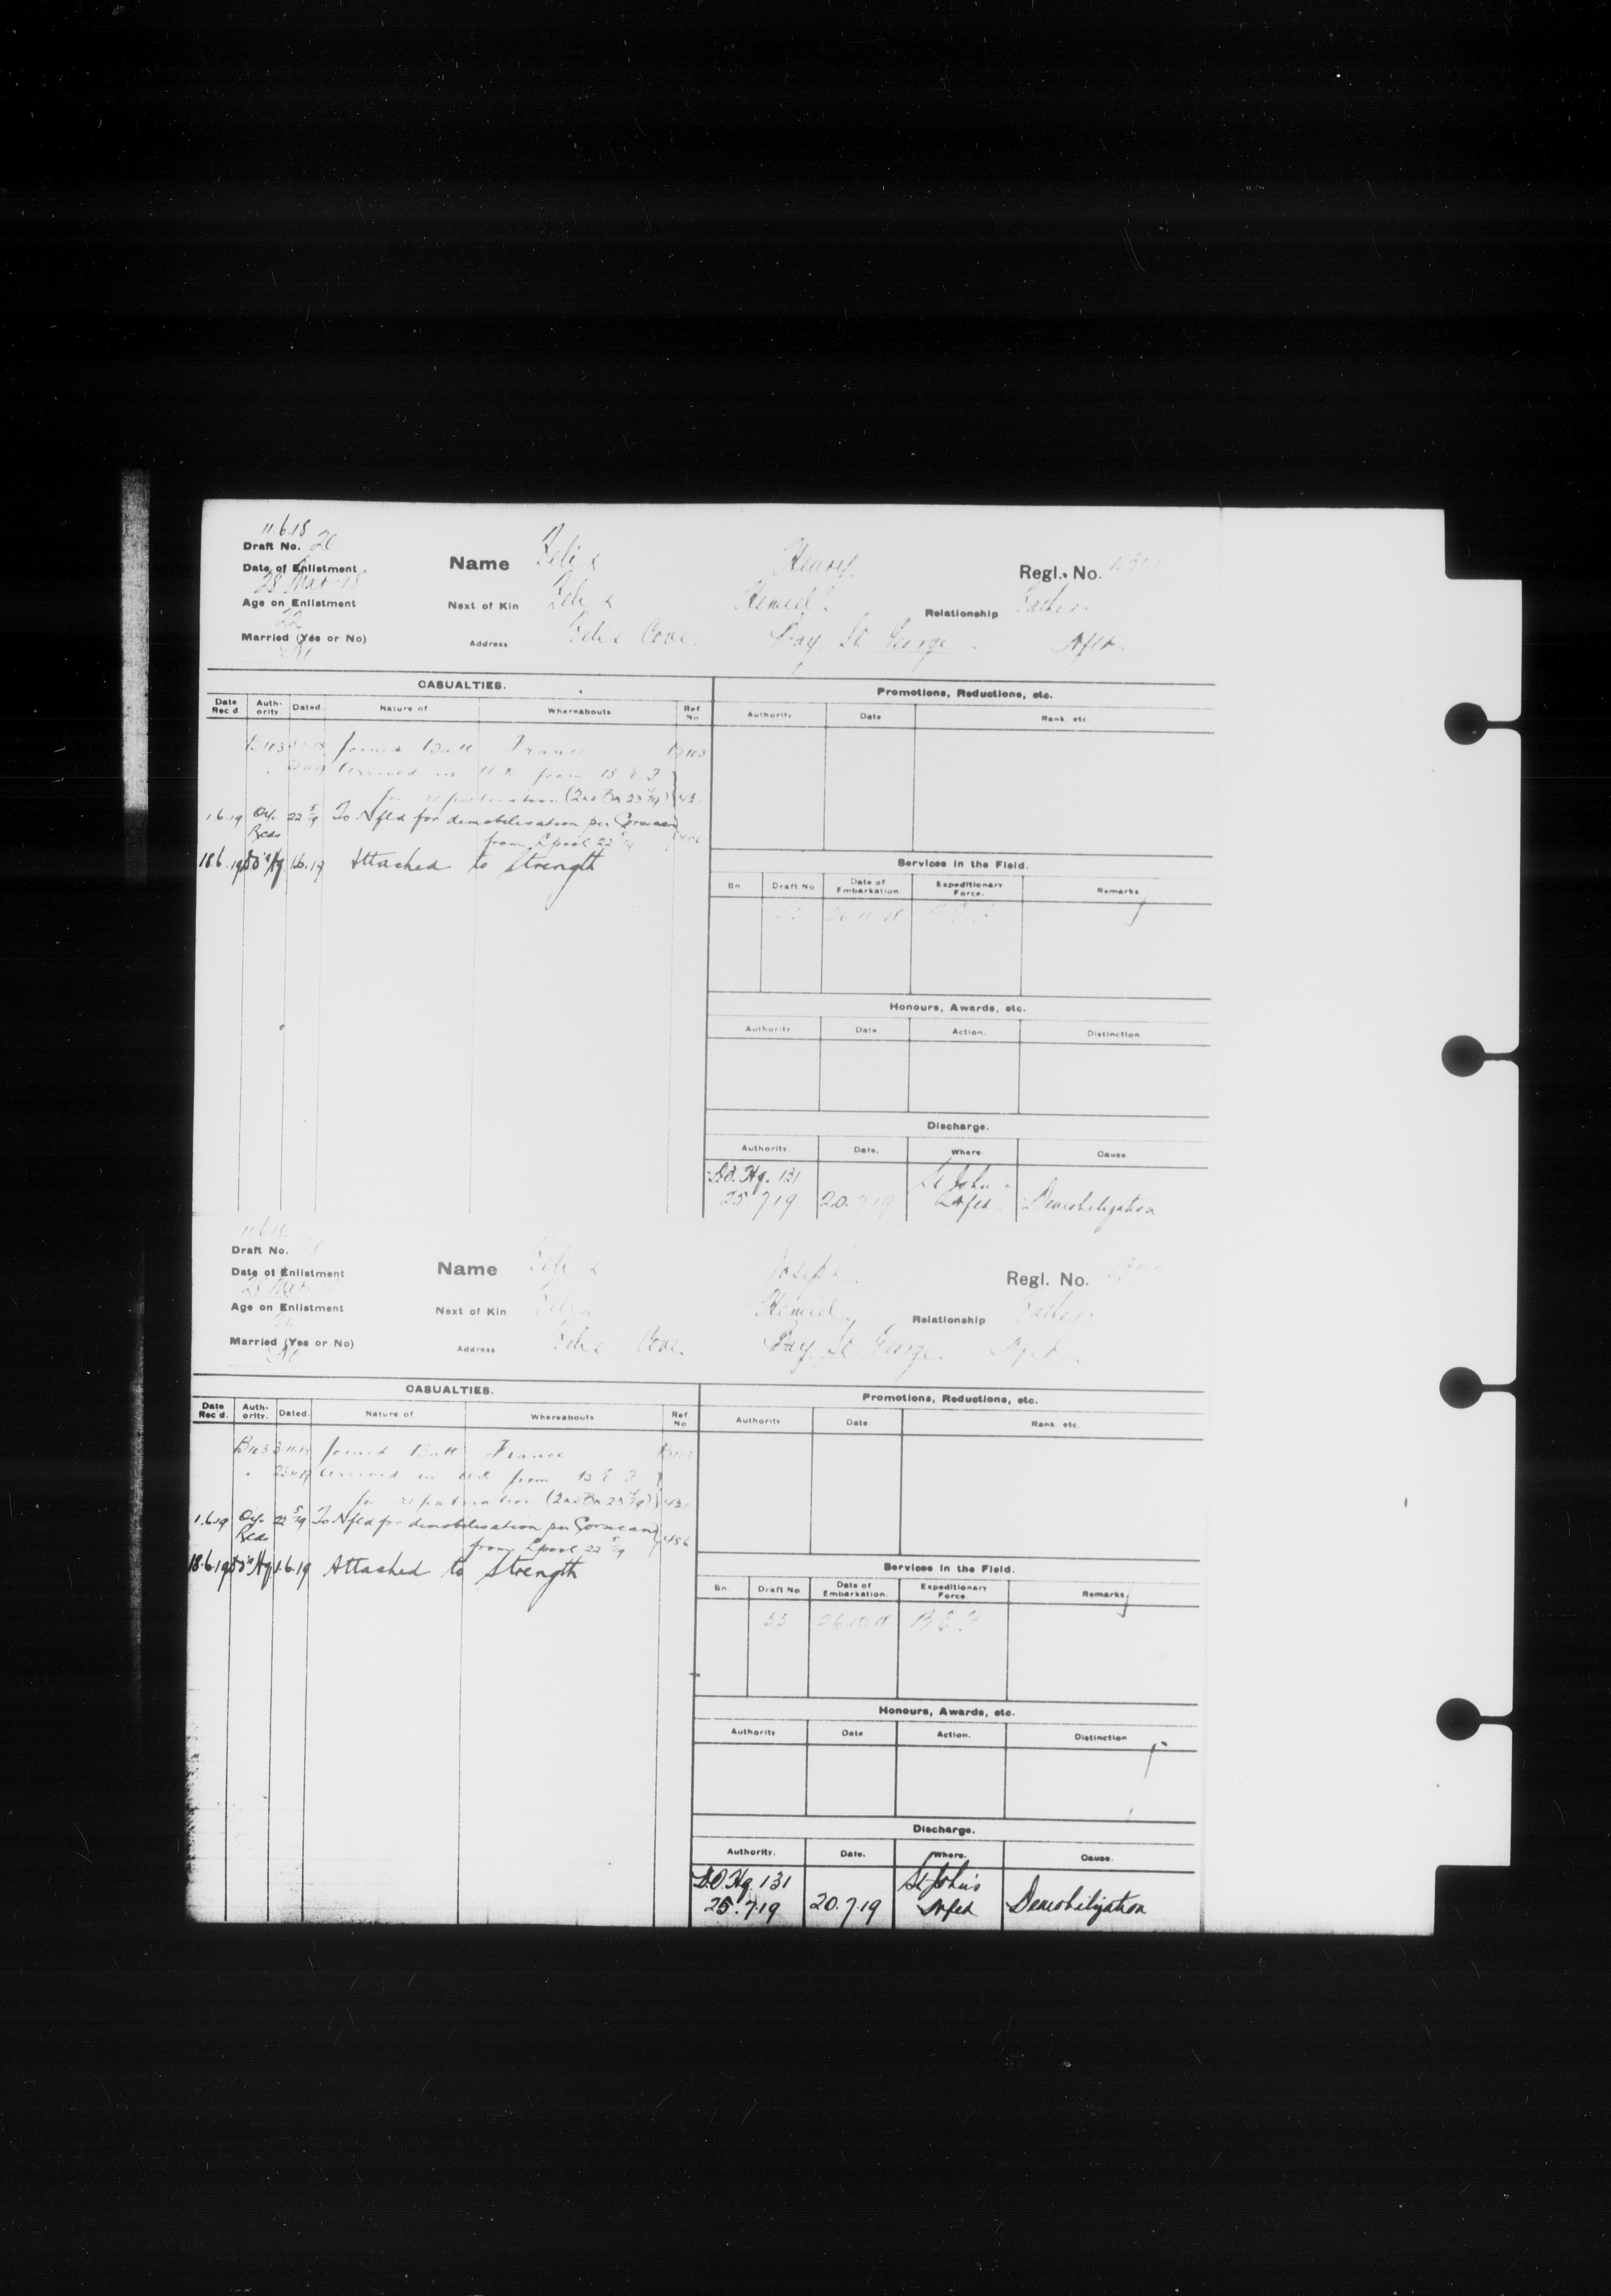 11.6.18
Draft No. 20
Name Felix Henry Regl. No.
Date of Enlistment
28 Mar 18
Age on Enlistment
22
Next of Kin Felix Relationship Father
Married (Yes or No)
No
Address Felix Cove. Bay St. George. Nfld.
CASUALTIES.
Date Rec'd Auth-ority. Dated. Nature of Whereabouts Ref. No
B113 Joined Batt France B113
Arrived in U.K from B E F
for repatriation (2nd Bn
1.6.19 O/c Recds 22 5/19 To Nfld for demobilisation per Corsican
from L'pool 22 5/19
18.6.19 D.O. Hq 1.6.19 Attached to Strength
Promotions, Reductions, etc.
Authority Date Rank, etc
Services in the Field.
Bn. Draft No Date of Embarkation. Expeditionary Force. Remarks
B E F
Honours, Awards, etc.
Authority Date. Action. Distinction
Discharge.
Authority. Date. Where. Cause
D.O. Hq. 131 St John's
25.7.19 20.7.19 Nfld. Demobilization
11.6.18
Draft No.
Name Felix Joseph Regl. No.
Date of Enlistment
28 Mar
Age on Enlistment
Next of Kin Felix Relationship Father
Married (Yes or No)
No
Address Felix Cove. Bay St. George. Nfld.
CASUALTIES.
Date Rec'd. Auth-ority. Dated. Nature of Whereabouts Ref No
B113 3.11.18 Joined Batt France
Arrived in U.K from B E F
for repatriation (2nd Bn
1.6.19 O/c Recds 22 5/19 To Nfld for demobilisation per Corsican
from L'pool 22 5/19 456
18.6.19 D.O. Hq 1.6.19 Attached to Strength
Promotions, Reductions, etc.
Authority Date. Rank, etc
Services in the Field.
Bn. Draft No Date of Embarkation. Expeditionary Force. Remarks
53 26.10.18 B E F
Honours, Awards, etc.
Authority Date Action. Distinction
Discharge.
Authority. Date. Where. Cause.
D.O. Hq. 131 St John's
25.7.19 20.7.19 Nfld Demobilization